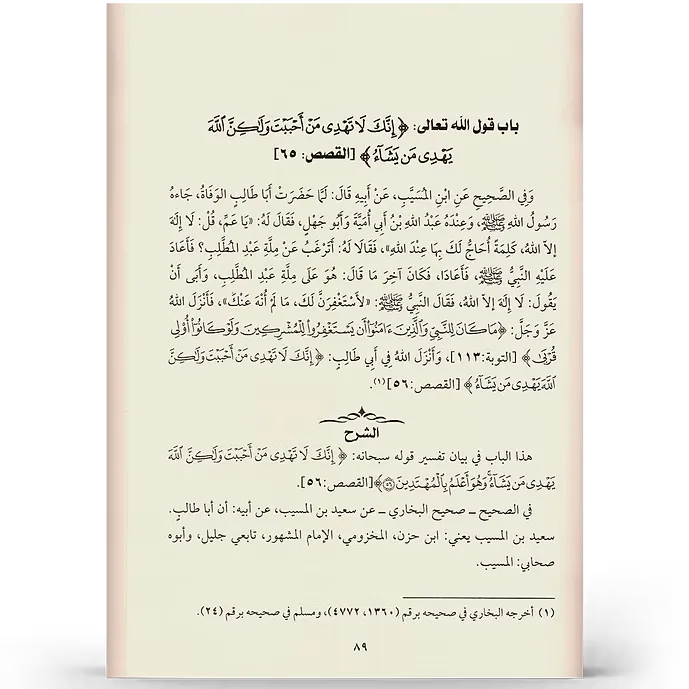 باب قول الله تعالى: ﴿ إِنَّكَ لَا تَهْدِى مَنْ أَحْبَبْتَ وَلَٰكِنَّ ٱللَّهَ
يَهْدِى مَن يَشَآءُ ﴾ [القصص: ٦٥]
وَفِي الصَّحِيحِ عَنِ ابْنِ المُسَيَّبِ، عَنْ أَبِيهِ قَالَ: لَمَّا حَضَرَتْ أَبَا طَالِبٍ الوَفَاةُ، جَاءهُ
رَسُولُ اللهِ ﷺ، وَعِنْدَهُ عَبْدُ اللهِ بْنُ أَبِي أُمَيَّةَ وَأَبُو جَهْلٍ، فَقَالَ لَهُ: «يَا عَمِّ، قُلْ: لَا إِلَهَ
إِلاَّ اللهُ، كَلِمَةً أُحَاجُّ لَكَ بِهَا عِنْدَ اللهِ»، فَقَالَا لَهُ: أَتَرْغَبُ عَنْ مِلَّةِ عَبْدِ المُطَّلِبِ؟ فَأَعَادَ
عَلَيْهِ النَّبِيُّ ﷺ، فَأَعَادَا، فَكَانَ آخِرَ مَا قَالَ: هُوَ عَلَى مِلَّةِ عَبْدِ المُطَّلِبِ، وَأَبَى أَنْ
يَقُولَ: لَا إِلَهَ إِلاَّ اللهُ، فَقَالَ النَّبِيُّ ﷺ: «لأَسْتَغْفِرَنَّ لَكَ، مَا لَمْ أُنْهَ عَنْكَ»، فَأَنْزَلَ اللهُ
عَزَّ وَجَلَّ: ﴿مَا كَانَ لِلنَّبِيِّ وَٱلَّذِينَ ءَامَنُوٓا۟ أَن يَسْتَغْفِرُوا۟ لِلْمُشْرِكِينَ وَلَوْ كَانُوٓا۟ أُو۟لِى
قُرْبَىٰ﴾ [التوبة:١١٣]، وَأَنْزَلَ اللهُ فِي أَبِي طَالِبٍ: ﴿ إِنَّكَ لَا تَهْدِى مَنْ أَحْبَبْتَ وَلَٰكِنَّ
ٱللَّهَ يَهْدِى مَن يَشَآءُ ﴾ [القصص:٥٦](١).
الشرح
هذا الباب في بيان تفسير قوله سبحانه: ﴿ إِنَّكَ لَا تَهْدِى مَنْ أَحْبَبْتَ وَلَٰكِنَّ ٱللَّهَ
يَهْدِى مَن يَشَآءُ ۚ وَهُوَ أَعْلَمُ بِٱلْمُهْتَدِينَ ٥٦﴾[القصص:٥٦].
في الصحيح – صحيح البخاري – عن سعيد بن المسيب، عن أبيه: أن أبا طالبٍ.
سعيد بن المسيب يعني: ابن حزن، المخزومي، الإمام المشهور، تابعي جليل، وأبوه
صحابي: المسيب.
(١) أخرجه البخاري في صحيحه برقم (١٣٦٠، ٤٧٧٢)، ومسلم في صحيحه برقم (٢٤).
٨٩